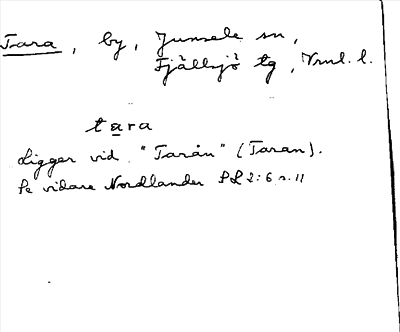 Tara, by, Junsele sn,
Fjällsjö tg, Vnrl. l.
tara
Ligger vid "Tarån" (Taran).
Se vidare Nordlander SL 2:6 s. 11